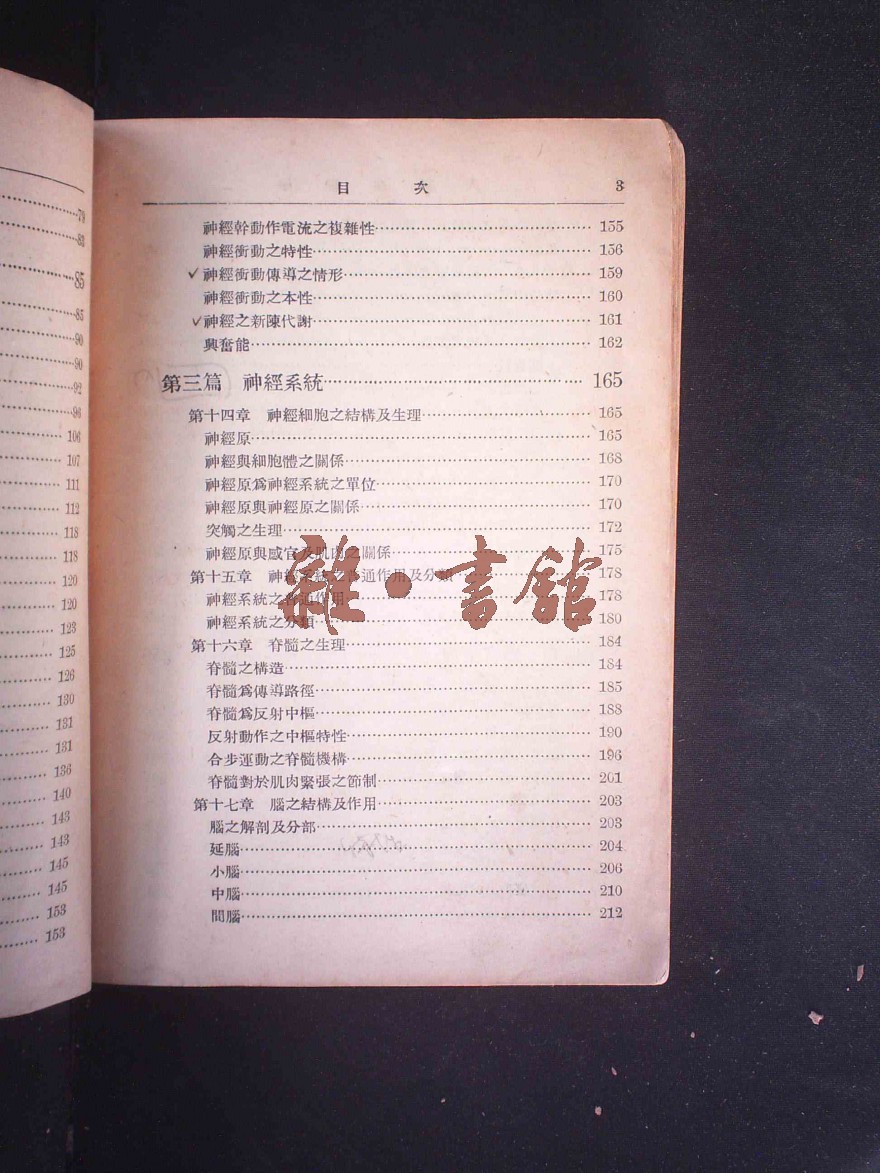 79
83
85
85
90
90
92
96
106
107
111
112
118
118
120
120
123
125
126
130
131
131
136
140
143
143
145
145
153
153
目 次 3
神經幹動作電流之複雜性 155
神經衝動之特性 156
✓神經衝動傳導之情形 159
神經衝動之本性 160
✓神經之新陳代謝 161
興奮能 162
第三篇 神經系統 165
第十四章 神經細胞之結構及生理 165
神經原 165
神經與細胞體之關係 168
神經原爲神經系統之單位 170
神經原與神經原之關係 170
突觸之生理 172
神經原與感官及肌肉之關係 175
第十五章 神經系統之普通作用及分類 178
神經系統之普通作用 178
神經系統之分類 180
雜·書館
第十六章 脊髓之生理 184
脊髓之構造 184
脊髓爲傳導路徑 185
脊髓爲反射中樞 188
反射動作之中樞特性 190
合步運動之脊髓機構 196
脊髓對於肌肉緊張之節制 201
第十七章 腦之結構及作用 203
腦之解剖及分部 203
延腦 204
小腦 206
中腦 210
間腦 212